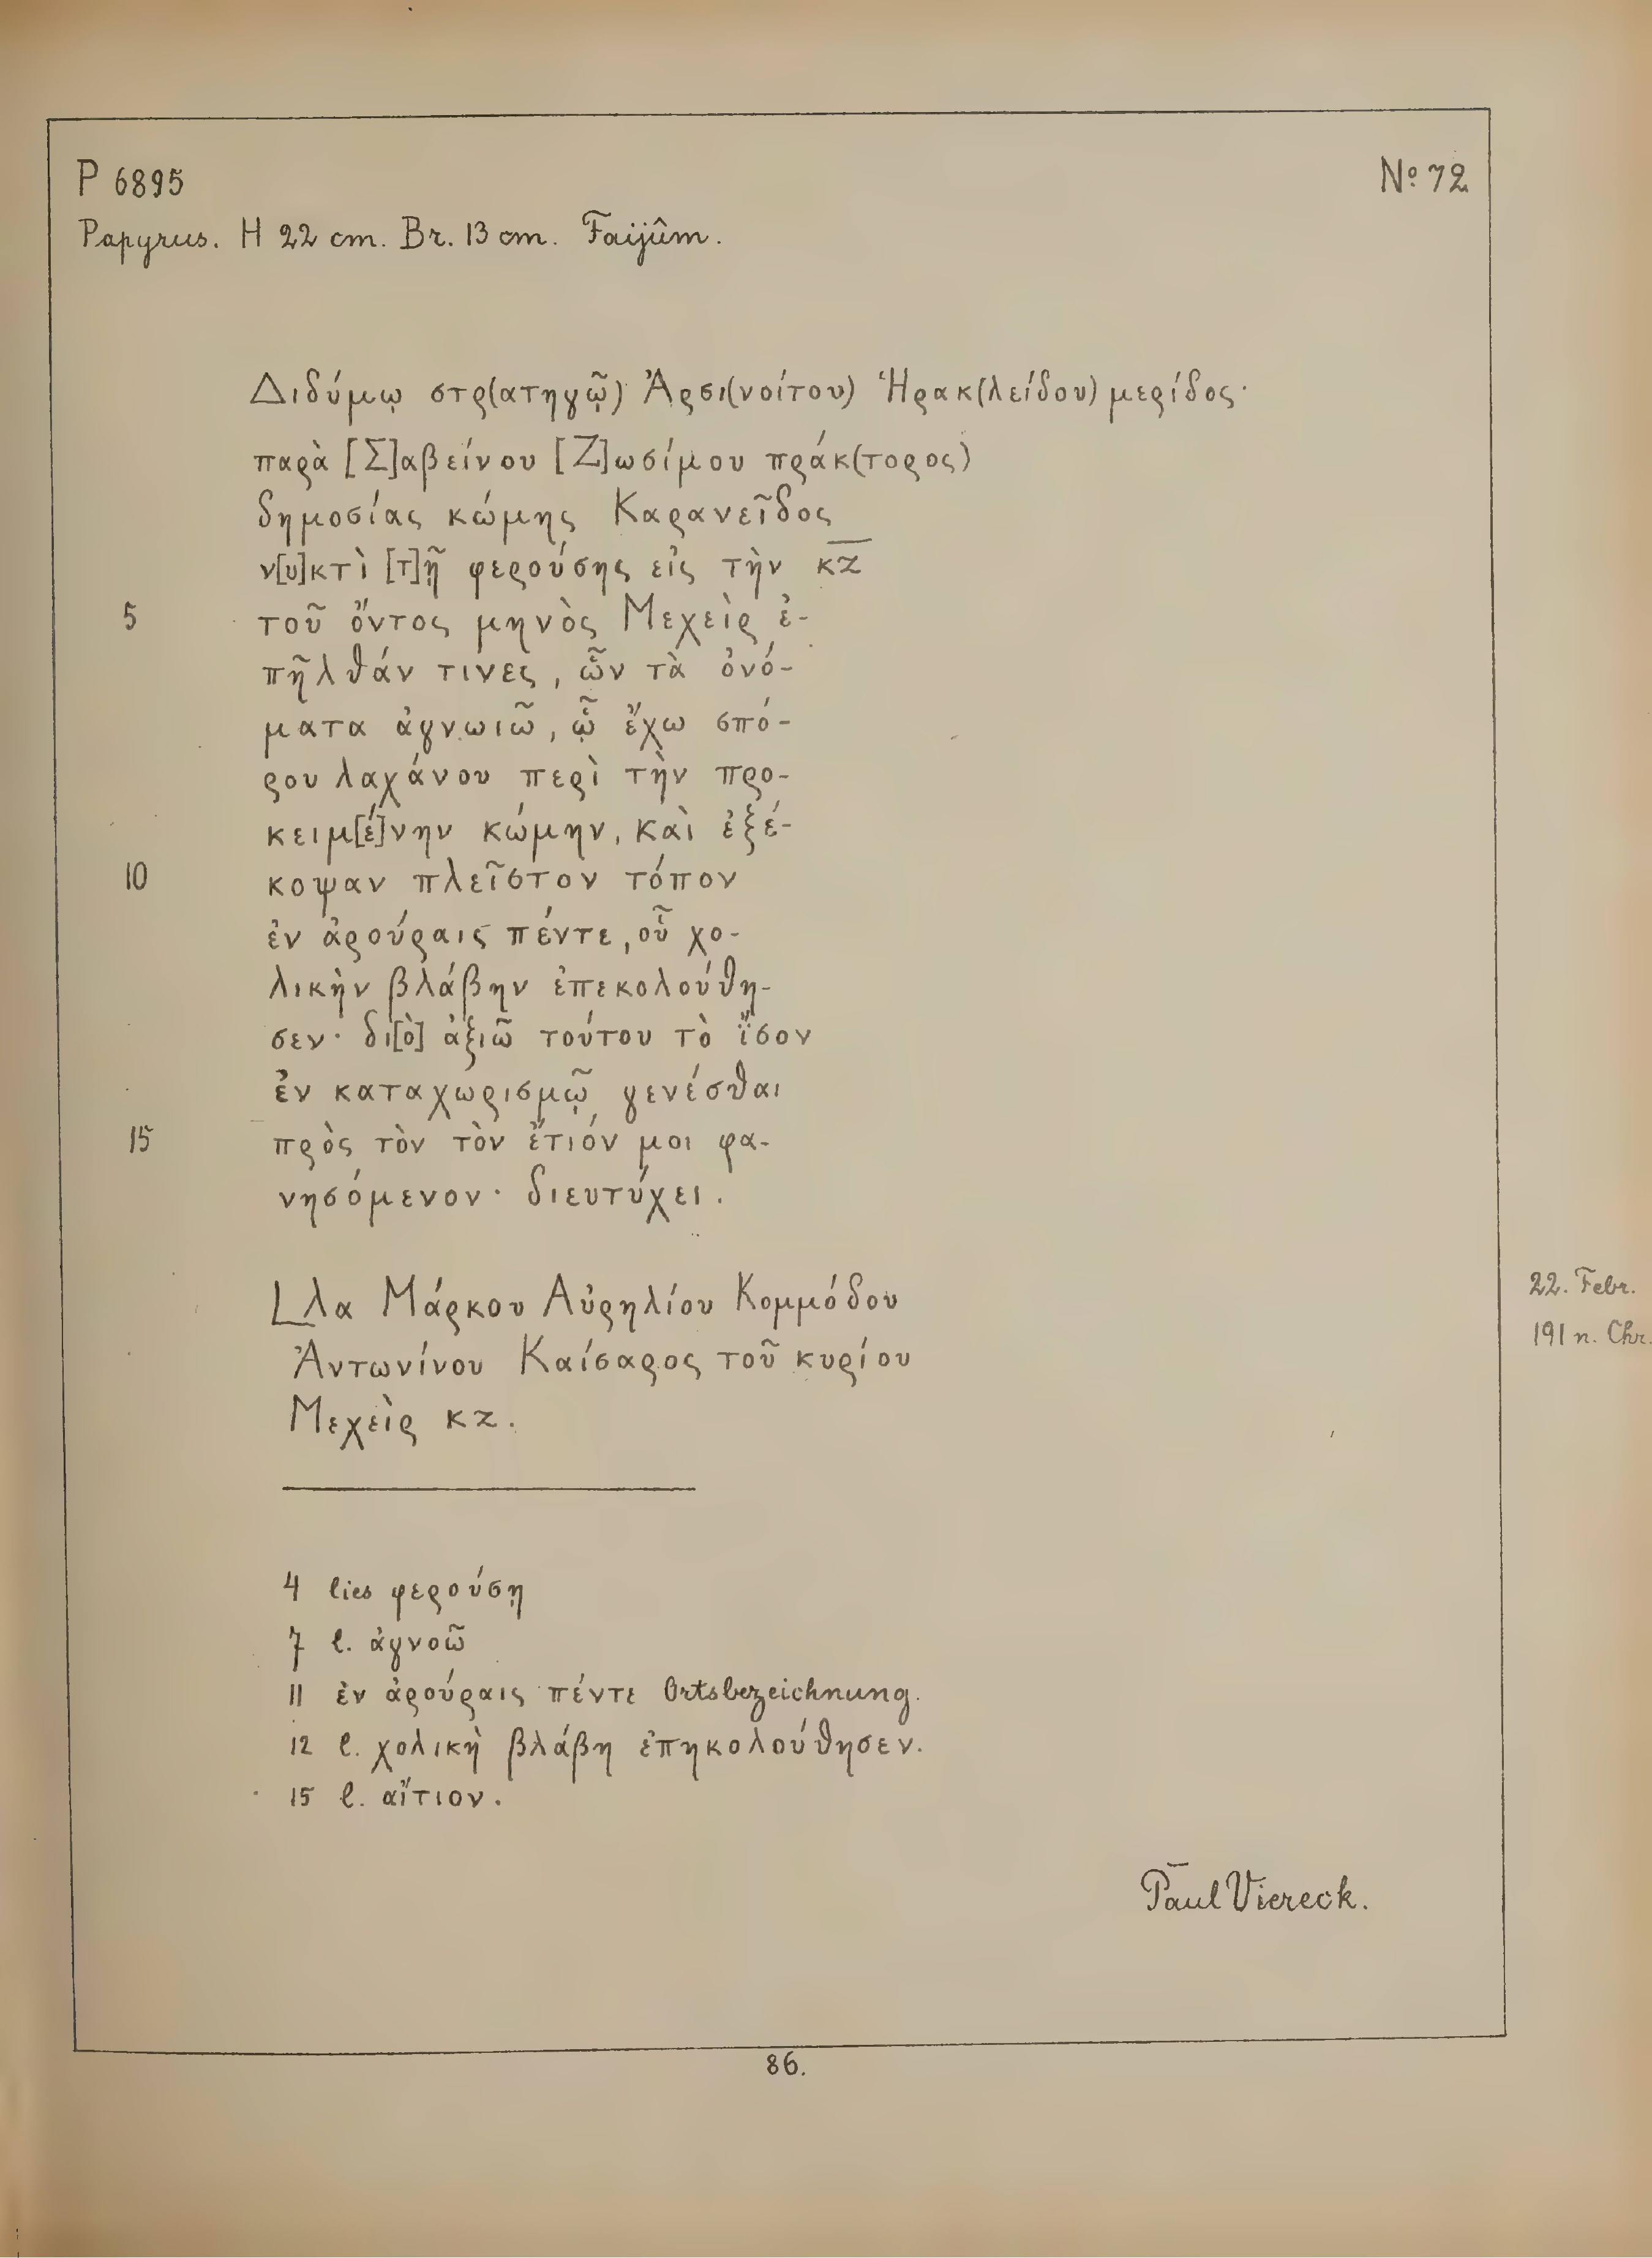 P 6895
No 72
Papyrus. H 22 cm. Br. 13 cm. Faijûm.
Διδύμῳ στρ(ατηγῷ) Ἀρσι(νοίτου) Ἡρακ(λείδου) μερίδος·
παρὰ [Σ]αβείνου [Ζ]ωσίμου πράκ(τορος)
δημοσίας κώμης Καρανεῖδος
ν[υ]κτὶ [τ]ῇ φερούσης εἰς τὴν κζ
5 τοῦ ὄντος μηνὸς Μεχεὶρ ἐ-
πῆλθάν τινες, ὧν τὰ ὀνό-
ματα ἀγνωιῶ, ᾧ ἔχω σπό-
ρου λαχάνου περὶ τὴν προ-
κειμ[έ]νην κώμην, καὶ ἐξέ-
10 κοψαν πλεῖστον τόπον
ἐν ἀρούραις πέντε, οὗ χο-
λικὴν βλάβην ἐπεκολούθη-
σεν· δι[ὸ] ἀξιῶ τούτου τὸ ἴ̈σον
ἐν καταχωρισμῷ γενέσθαι
15 πρὸς τὸν τὸν ἔτιόν μοι φα-
νησόμενον· διευτύχει.
𐅹λα Μάρκου Αὐρηλίου Κομμόδου
22. Febr.
Ἀντωνίνου Καίσαρος τοῦ κυρίου
191 n. Chr.
Μεχεὶρ κζ.
4 lies φερούσῃ
7 l. ἀγνοῶ
11 ἐν ἀρούραις πέντε Ortsbezeichnung.
12 l. χολικὴ βλάβη ἐπηκολούθησεν.
15 l. αἴτιον.
Paul Viereck.
86.